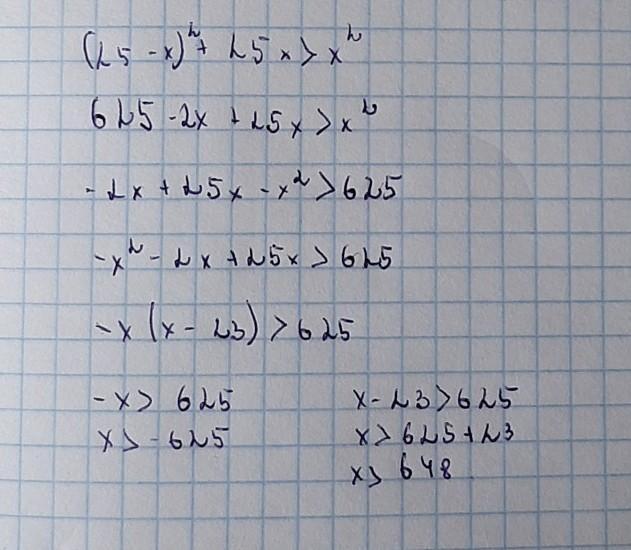 (25 - x)² + 25x > x²
625 - 2x + 25x > x²
- 2x + 25x - x² > 625
-x² - 2x + 25x > 625
-x (x - 23) > 625
-x > 625 x - 23 > 625
x > - 625 x > 625 + 23
x > 648